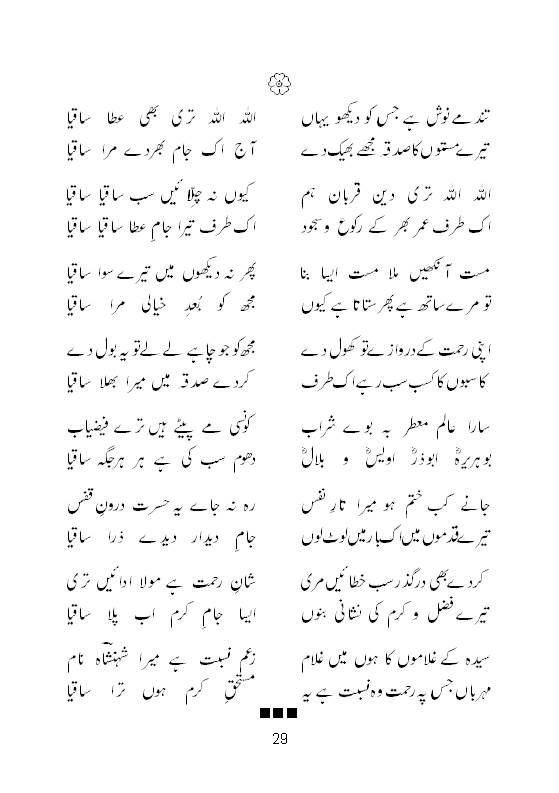 تند مے نوش ہے جس کو دیکھو یہاں اللہ اللہ تری بھی عطا ساقیا
تیرے مستوں کا صدقہ مجھے بھیک دے آج اک جام بھردے مرا ساقیا
اللہ اللہ تری دین قرباں ہم کیوں نہ چلّائیں سب ساقیا ساقیا
اک طرف عمر بھر کے رکوع و سجود اک طرف تیرا جامِ عطا ساقیا ساقیا
مست آنکھیں ملا مست ایسا بنا پھر نہ دیکھوں میں تیرے سوا ساقیا
تو مرے ساتھ ہے پھر ستاتا ہے کیوں مجھ کو بُعدِ خیالی مرا ساقیا
اپنی رحمت کے دروازے تو کھول دے مجھ کو جو چاہے لے لے تو یہ بول دے
کاسبوں کا کسب سب رہے اک طرف کردے صدقہ میں میرا بھلا ساقیا
سارا عالم معطر بہ بوے شراب کونسی مے پیٹے ہیں ترے فیضیاب
بوہریرہؓ ابوذرؓ اویسؓ و بلالؓ دھوم سب کی ہے ہر ہرجگہ ساقیا
جانے کب ختم ہو میرا تارِ نفس رہ نہ جاے یہ حسرت درونِ قفس
تیرے قدموں میں اک بار میں لوٹ لوں جامِ دیدار دیدے ذرا ساقیا
کردے بھی درگذر سب خطائیں مری شانِ رحمت ہے مولا ادائیں تری
تیرے فضل و کرم کی نشانی بنوں ایسا جامِ کرم اب پلا ساقیا
سیدہ کے غلاموں کا ہوں میں غلام زعم نسبت ہے میرا شہنشاہ نام
مہرباں جس پہ رحمت وہ نسبت ہے یہ مستحقِ کرم ہوں ترا ساقیا
29